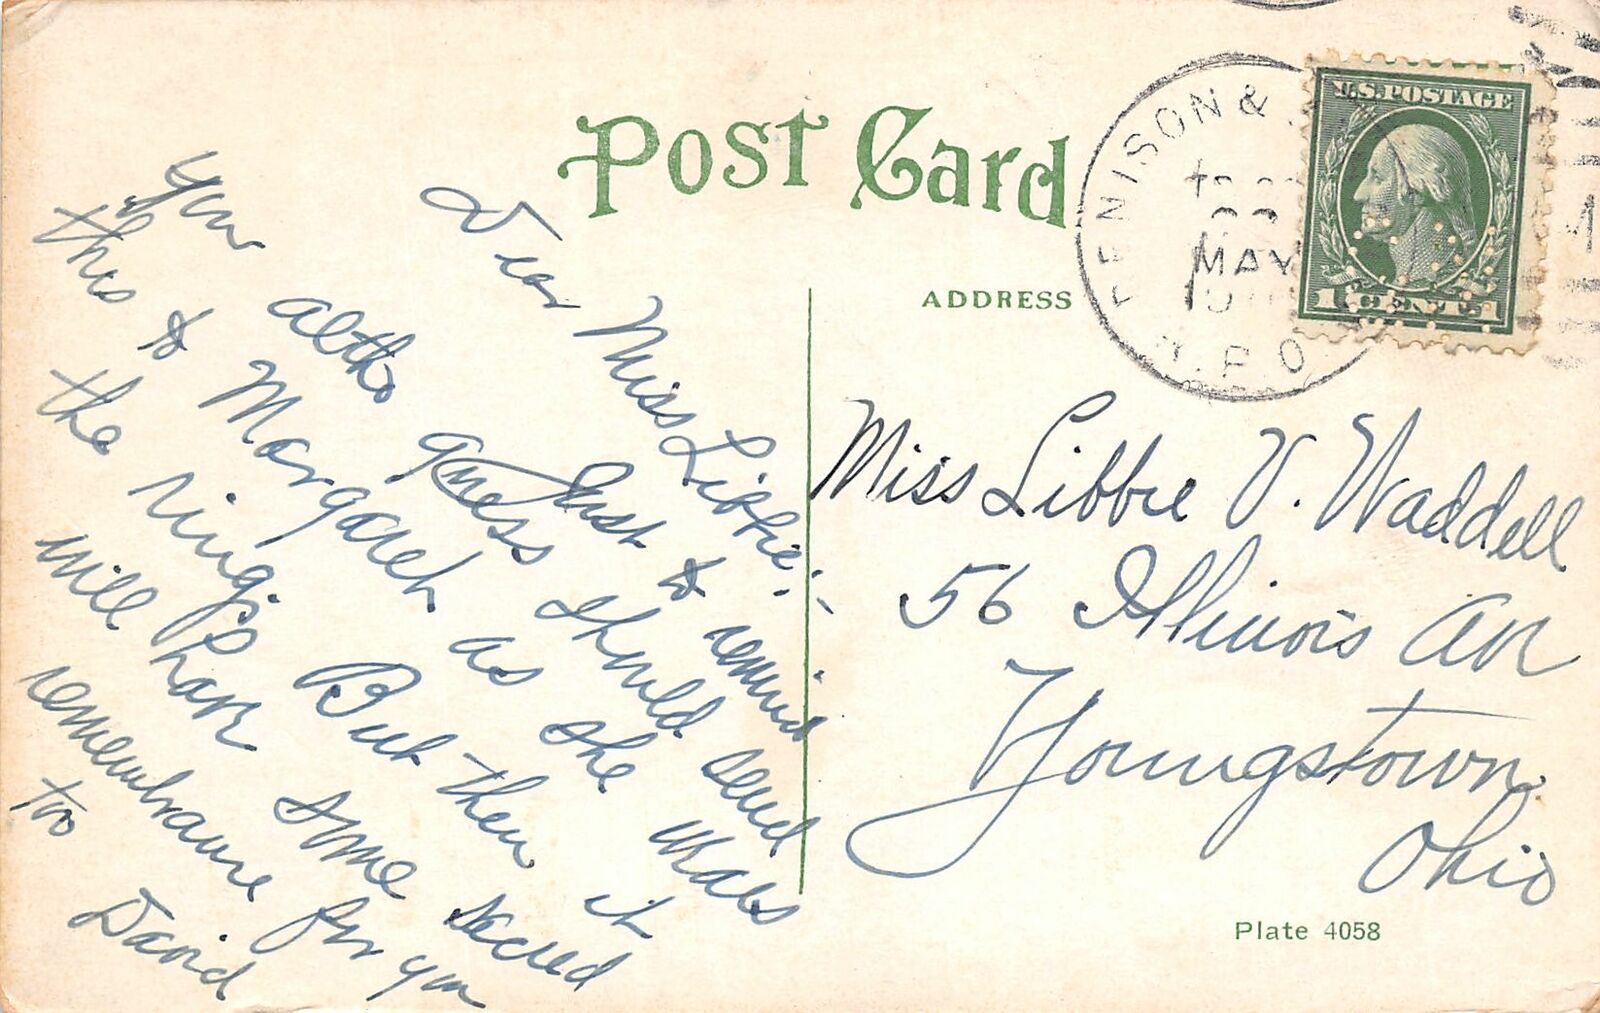 Post Card
ADDRESS
DENISON &
MAY
R.P.O.
U.S. POSTAGE
1 CENT 1
Dear Miss Libbie:-
Just to remind
you altho guess should send
this to Margaret as she wears
the ring. But then it
will have some sacred
remembrance for you
too
David
Miss Libbie V. Waddell
56 Illinois Av
Youngstown
Ohio
Plate 4058